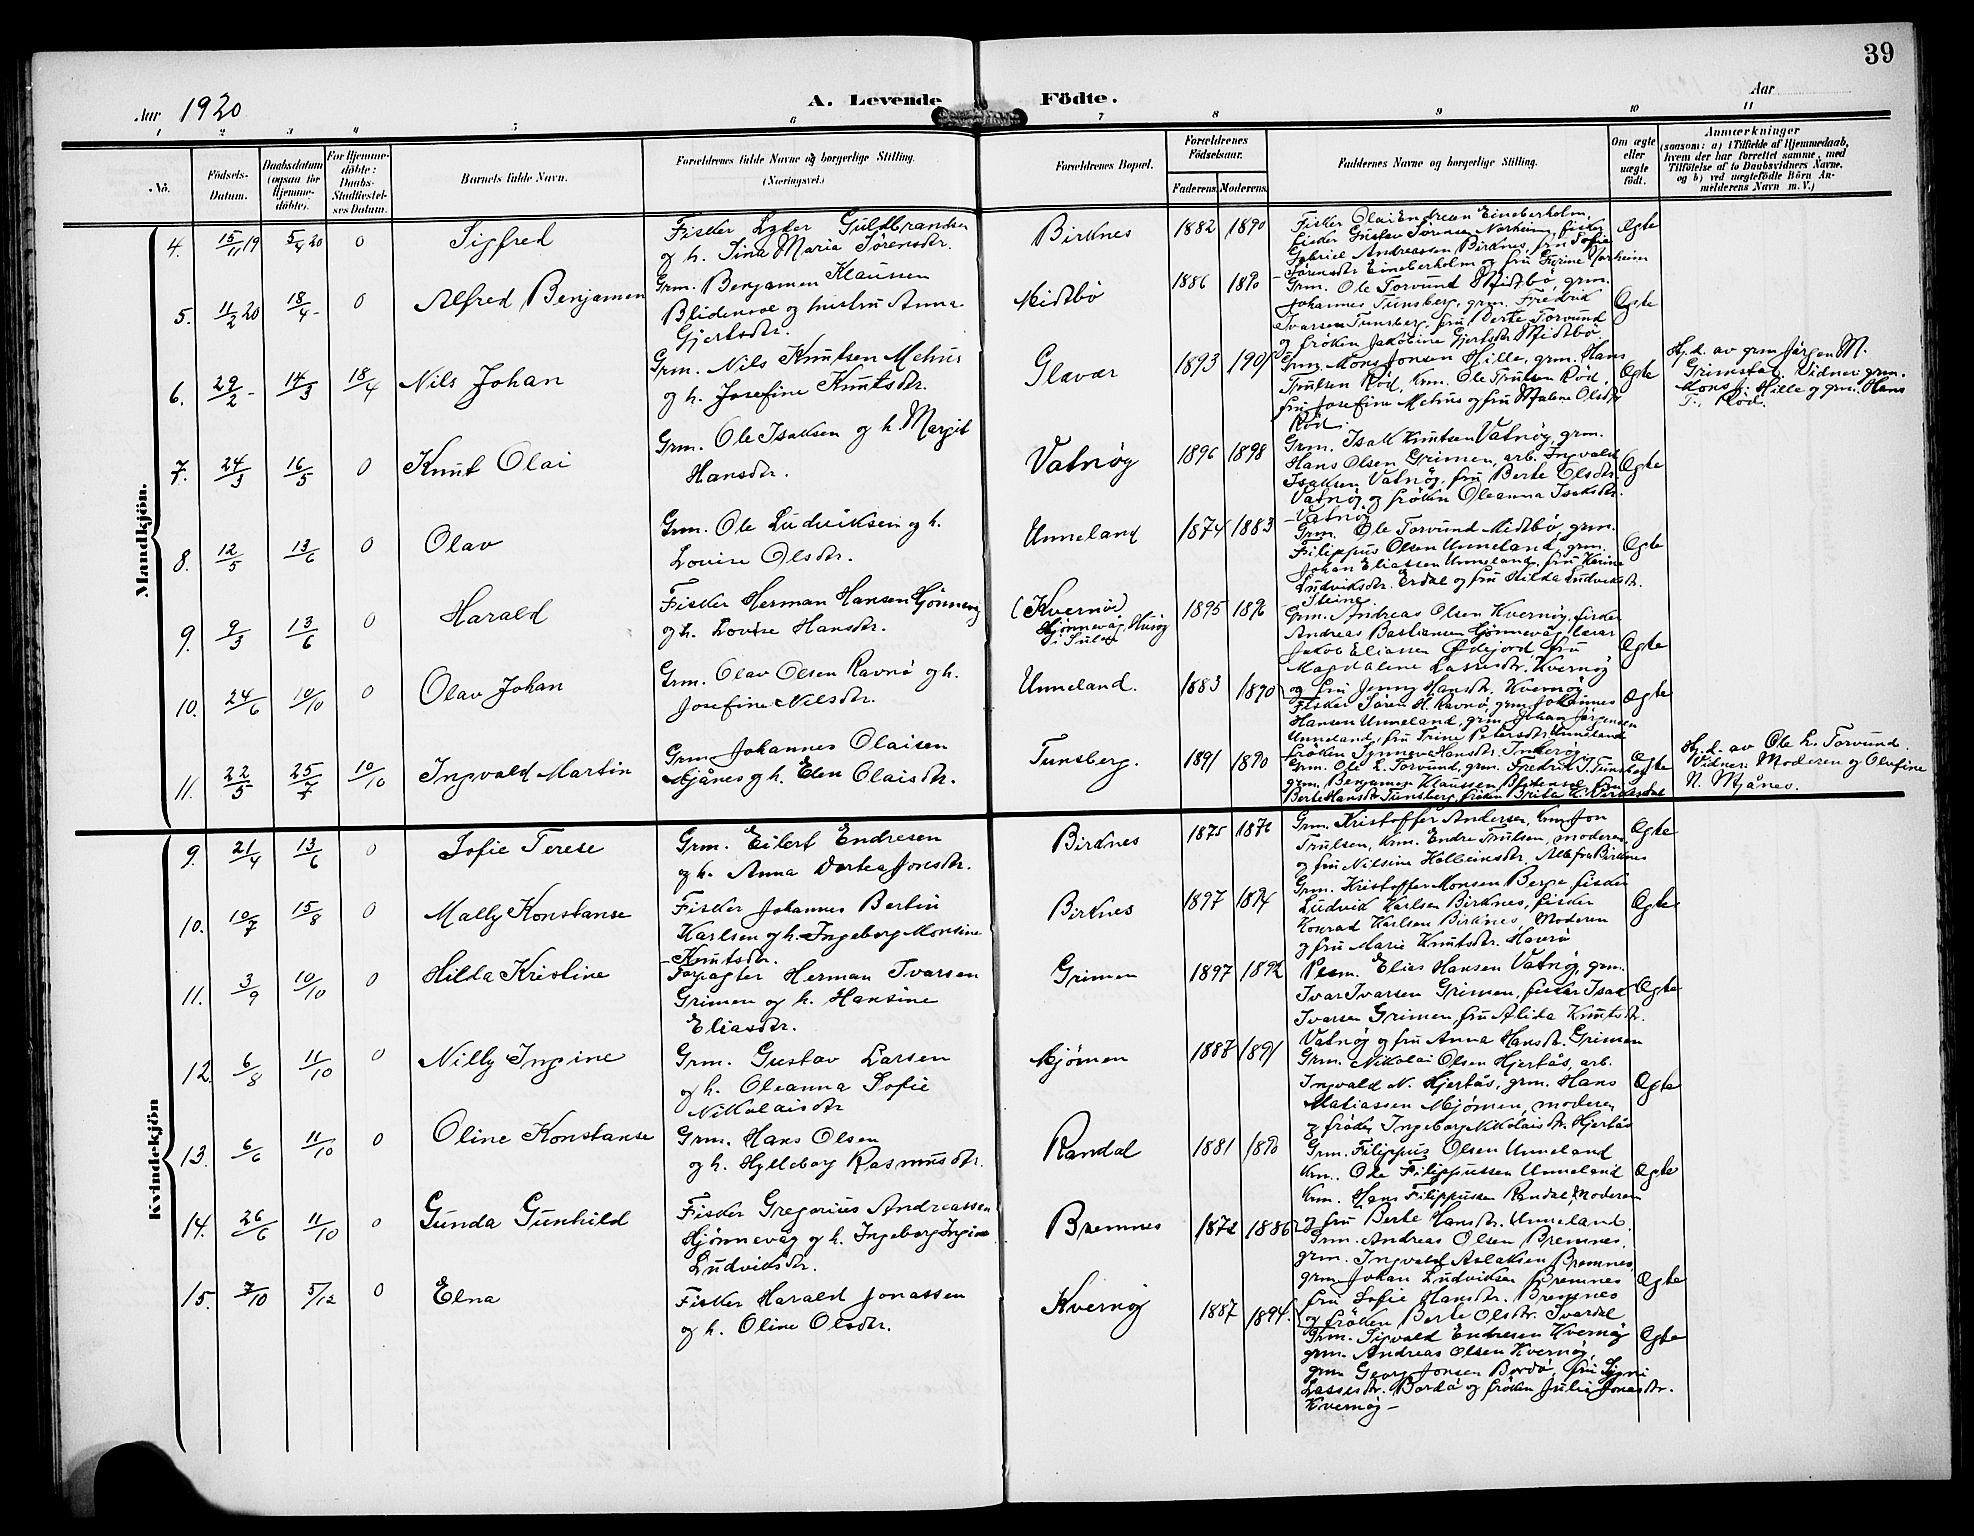 39
Aar 1920
A. Levende Födte.
Aar
1 2 3 4 5 6 7 8 9 10 11
No.
Födsels-
Datum.
Daabsdatum
(ogsaa for
Hjemme-
döbte).
For Hjemme-
döbte:
Daabs-
Stadfæstel-
ses Datum.
Barnets fulde Navn.
Forældrenes fulde Navne og borgerlige Stilling.
(Næringsvei.)
Forældrenes Bopæl.
Forældrenes
Födselsaar.
Faderens. Moderens.
Faddernes Navne og borgerlige Stilling.
Om ægte
eller
uægte
födt.
Anmærkninger
(saasom: a) i Tilfælde af Hjemmedaab,
hvem der har forrettet samme, med
Tilföielse af to Daabsvidners Navne,
og b) ved uægtefödte Börn An-
melderens Navn m. V.)
Mandkjön.
4. 15/11 19 5/4 20 0 Sigfred
Fisker Lyder Guldbrandsen
og h. Sina Maria Sörensdtr.
Birknes 1882 1890
Fisker Olai Endresen Eineberholm,
fisker Gustav Sörensen Norheim, fisker
Gabriel Andreassen Birknes, fru Sofie
Sörensdtr Eineberholm og fru Gurine Norheim
Ægte
5. 11/2 20 18/4 - 0 Alfred Benjamen
Grm. Benjamen Klaussen
Blidensol og hustru Anna
Gjertsdtr.
Midtbö 1886 1890
Grm. Ole Torvund Midtbö, grm.
Johannes Tunsberg, grm. Fredrik
Ivarsen Tunsberg, fru Berte Torvund
og fröken Jakobine Gjertsdtr Midtbö
Ægte
6. 29/2 - 14/3 18/4 Nils Johan
Grm. Nils Knutsen Mehus
og h. Josefine Knutsdtr.
Glavær 1893 1901
Grm. Mons Jonsen Hille, grm. Hans
Trulsen Röd, Krm. Ole Trulsen Röd,
fru Josefine Mehus og fru Malene Olsdtr
Röd.
Ægte
Hj.d. av grm Jörgen M.
Grimstad. Vidner: grm.
Mons J. Hille og grm. Hans
T. Röd.
7. 24/3 16/5 0 Knut Olai
Grm. Ole Isaksen og h. Margit
Hansdtr.
Vatnöy 1896 1898
Grm. Isak Knutsen Vatnöy, grm.
Hans Olsen Grimen, arb. Ingvald
Isaksen Vatnöy, fru Berte Olsdtr.
Vatnöy og fröken Oleanna Isaksdtr.
Vatnöy
Ægte
8. 12/5 13/6 0 Olav
Grm. Ole Ludviksen og h.
Lovise Olsdtr.
Unneland 1874 1883
Grm. Ole Torvund Midtbö, grm.
Filippus Olsen Unneland, grm.
Johan Eliassen Unneland, fru Karine
Ludviksdtr. Erdal og fru Hilda Ludviksdtr.
Steine
Ægte
9. 9/3 13/6 0 Harald
Fisker Herman Hansen Hjönnevåg
og h. Lovise Hansdtr.
(Kvernöy)
Hjönnevåg, Husöy
i Sulen
1895 1896
Grm. Andreas Olsen Kvernöy, fisker
Andreas Bastiansen Hjönnevåg, lærer
Jakob Eliassen Ödejord, fru
Magdalene Lassesdtr. Kvernöy
og fru Jenny Hansdtr. Kvernöy
Ægte
10. 24/6 10/10 0 Olav Johan
Grm. Olav Olsen Ravnö og h.
Josefine Nilsdtr.
Unneland. 1883 1890
Fisker Sören H. Ravnö, grm Johannes
Hansen Unneland, grm. Johan Jörgensen
Unneland, fru Trine Petersdtr. Unneland
fröken Synneve Hansdtr.
Ægte
11. 22/5 25/7 10/10 Ingvald Martin
Grm Johannes Olaisen
Mjånes og h. Elen Olaisdtr.
Tunsberg. 1891 1890
Grm. Ole L. Torvund, grm. Fredrik I. Tunsberg
grm. Benjamen Klaussen Blidensol, fru
Berte Hansdtr Tunsberg, fröken
Ægte
Hj.d. av Ole L. Torvund.
Vidner: Moderen og Olefine
N. Mjånes.
Kvindekjön
9. 21/4 13/6 0 Sofie Terese
Grm. Eilert Endresen
og h. Anna Dortea Jonsdtr.
Birknes 1875 1876
Grm. Kristoffer Andersen, krm Jon
Trulsen, Krm. Endre Trulsen, moderen
og fru Nilsine Kolbeinsdtr. Alle fra Birknes
Ægte
10. 10/7 15/8 0 Mally Konstanse
Fisker Johannes Bertin
Karlsen og h. Ingeborg Monsine
Knutsdtr.
Birknes 1897 1894
Grm. Kristoffer Monsen Berge, fisker
Ludvik Karlsen Birknes, fisker
Konrad Karlsen Birknes, Moderen
og fru Marie Knutsdtr. Havrö
Ægte
11. 3/9 10/10 0 Hilda Kristine
Forpagter Herman Ivarsen
Grimen og h. Hansine
Eliasdtr.
Grimen 1897 1892
Pesm. Elias Hansen Vatnöy, grm.
Ivar Ivarsen Grimen, fisker Isak
Ivarsen Grimen, fru Alida Knutsdtr.
Vatnöy og fru Anna Hansdtr. Grimen
Ægte
12. 6/8 11/10 0 Nilly Ingine
Grm. Gustav Larsen
og h. Oleanna Sofie
Nikolaisdtr
Mjömen 1887 1891
Grm. Nikolai Olsen Hjertås, arb.
Ingvald N. Hjertås, grm. Hans
Matiassen Mjömen, moderen
og fröken Ingeborg Nikolaisdtr. Hjertås
Ægte
13. 6/6 11/10 0 Oline Konstanse
Grm. Hans Olsen
og h. Hylleborg Rasmusdtr.
Randal 1881 1890
Grm. Filippus Olsen Unneland
Krm. Ole Filippussen Unneland
Krm. Hans Filippussen Randal, Moderen
og fru Berte Hansdtr. Unneland.
Ægte
14. 26/6 11/10 0 Gunda Gunhild
Fisker Gregorius Andreassen
Hjönnevåg og h. Ingeborg Ingine
Ludviksdtr.
Bremnes 1872 1886
Grm. Andreas Olsen Bremnes,
grm. Ingvald Aslaksen Bremnes,
grm. Johan Ludviksen Bremnes
fru Sofie Hansdtr. Bremnes
og fröken Berte Olsdtr. Ivardal
Ægte
15. 7/10 5/12 0 Elna
Fisker Harald Jonassen
og h. Oline Olsdtr.
Kvernöy 1887 1894.
Grm. Sigvald Endresen Kvernöy
grm. Andreas Olsen Kvernöy,
grm Georg Jonsen Bordö, fru Signi
Lassesdtr. Bordö og fröken Julie Jonasdtr.
Kvernöy -
Ægte